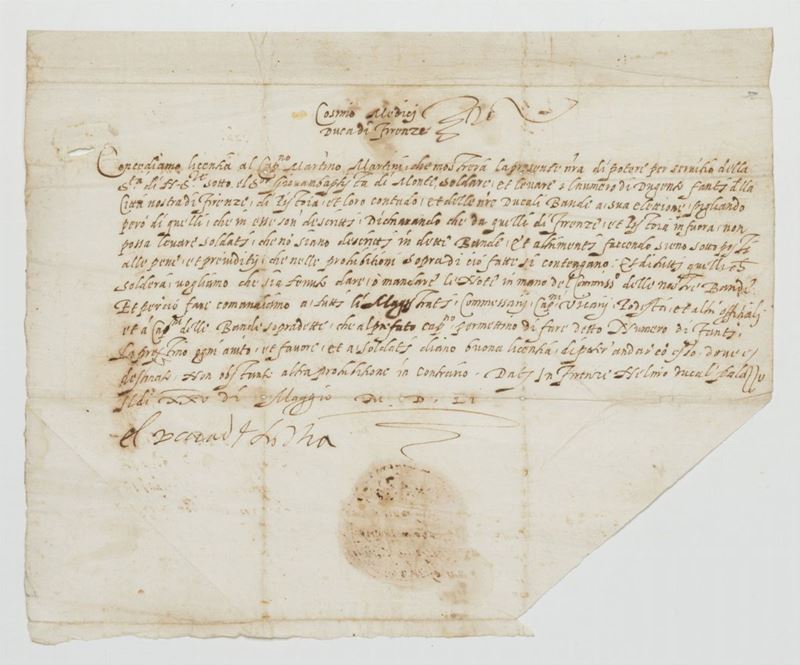 Cosmo Medici
Duca di Firenze
Concediamo licentia al Cap.no Martino Martini, che mostrerà la presente nra di potere per servitio della
S.tà di N. S.re sotto el S.or Giovambapta di Monte, soldare, et levare el numero di Dugento fanti della
Città nostra di Firenze, di Pistoia, et loro contado, et delle nre Ducali Bande a sua elettione, pigliando
però di quelli, che in esse son descritti, Dichiarando che da quelli di Firenze, et Pistoia in fuora, non
possa levare soldati, che nō siano descritti in dette Bande, Et altrimenti facendo sieno sotto posti
alle pene, et preiuditij, che nelle prohibitioni sopra di ciò fatte si contengano. Et di tutti quelli che
solderà, vogliamo che sia tenuto dare, o mandare le Note in mano del Commiss.o delle nostre Bande.
Et perciò fare comandiamo a tutti li Commissarij Cap.ni Vicarij Podestà, et altri offitiali
et a Cap.ni delle Bande sopradette, che al prefato cap.no permettino di fare detto Numero di Fanti,
La prestino ogni aiuto, et favore, et a soldati diano buona licentia, di poter andar cō esso, dove è
destinato, Non obstante altra prohibitione in contrario. Dat. In Firenze Nel nro ducal palazzo
Il dì XXV di Maggio M. D. LI
el duca di